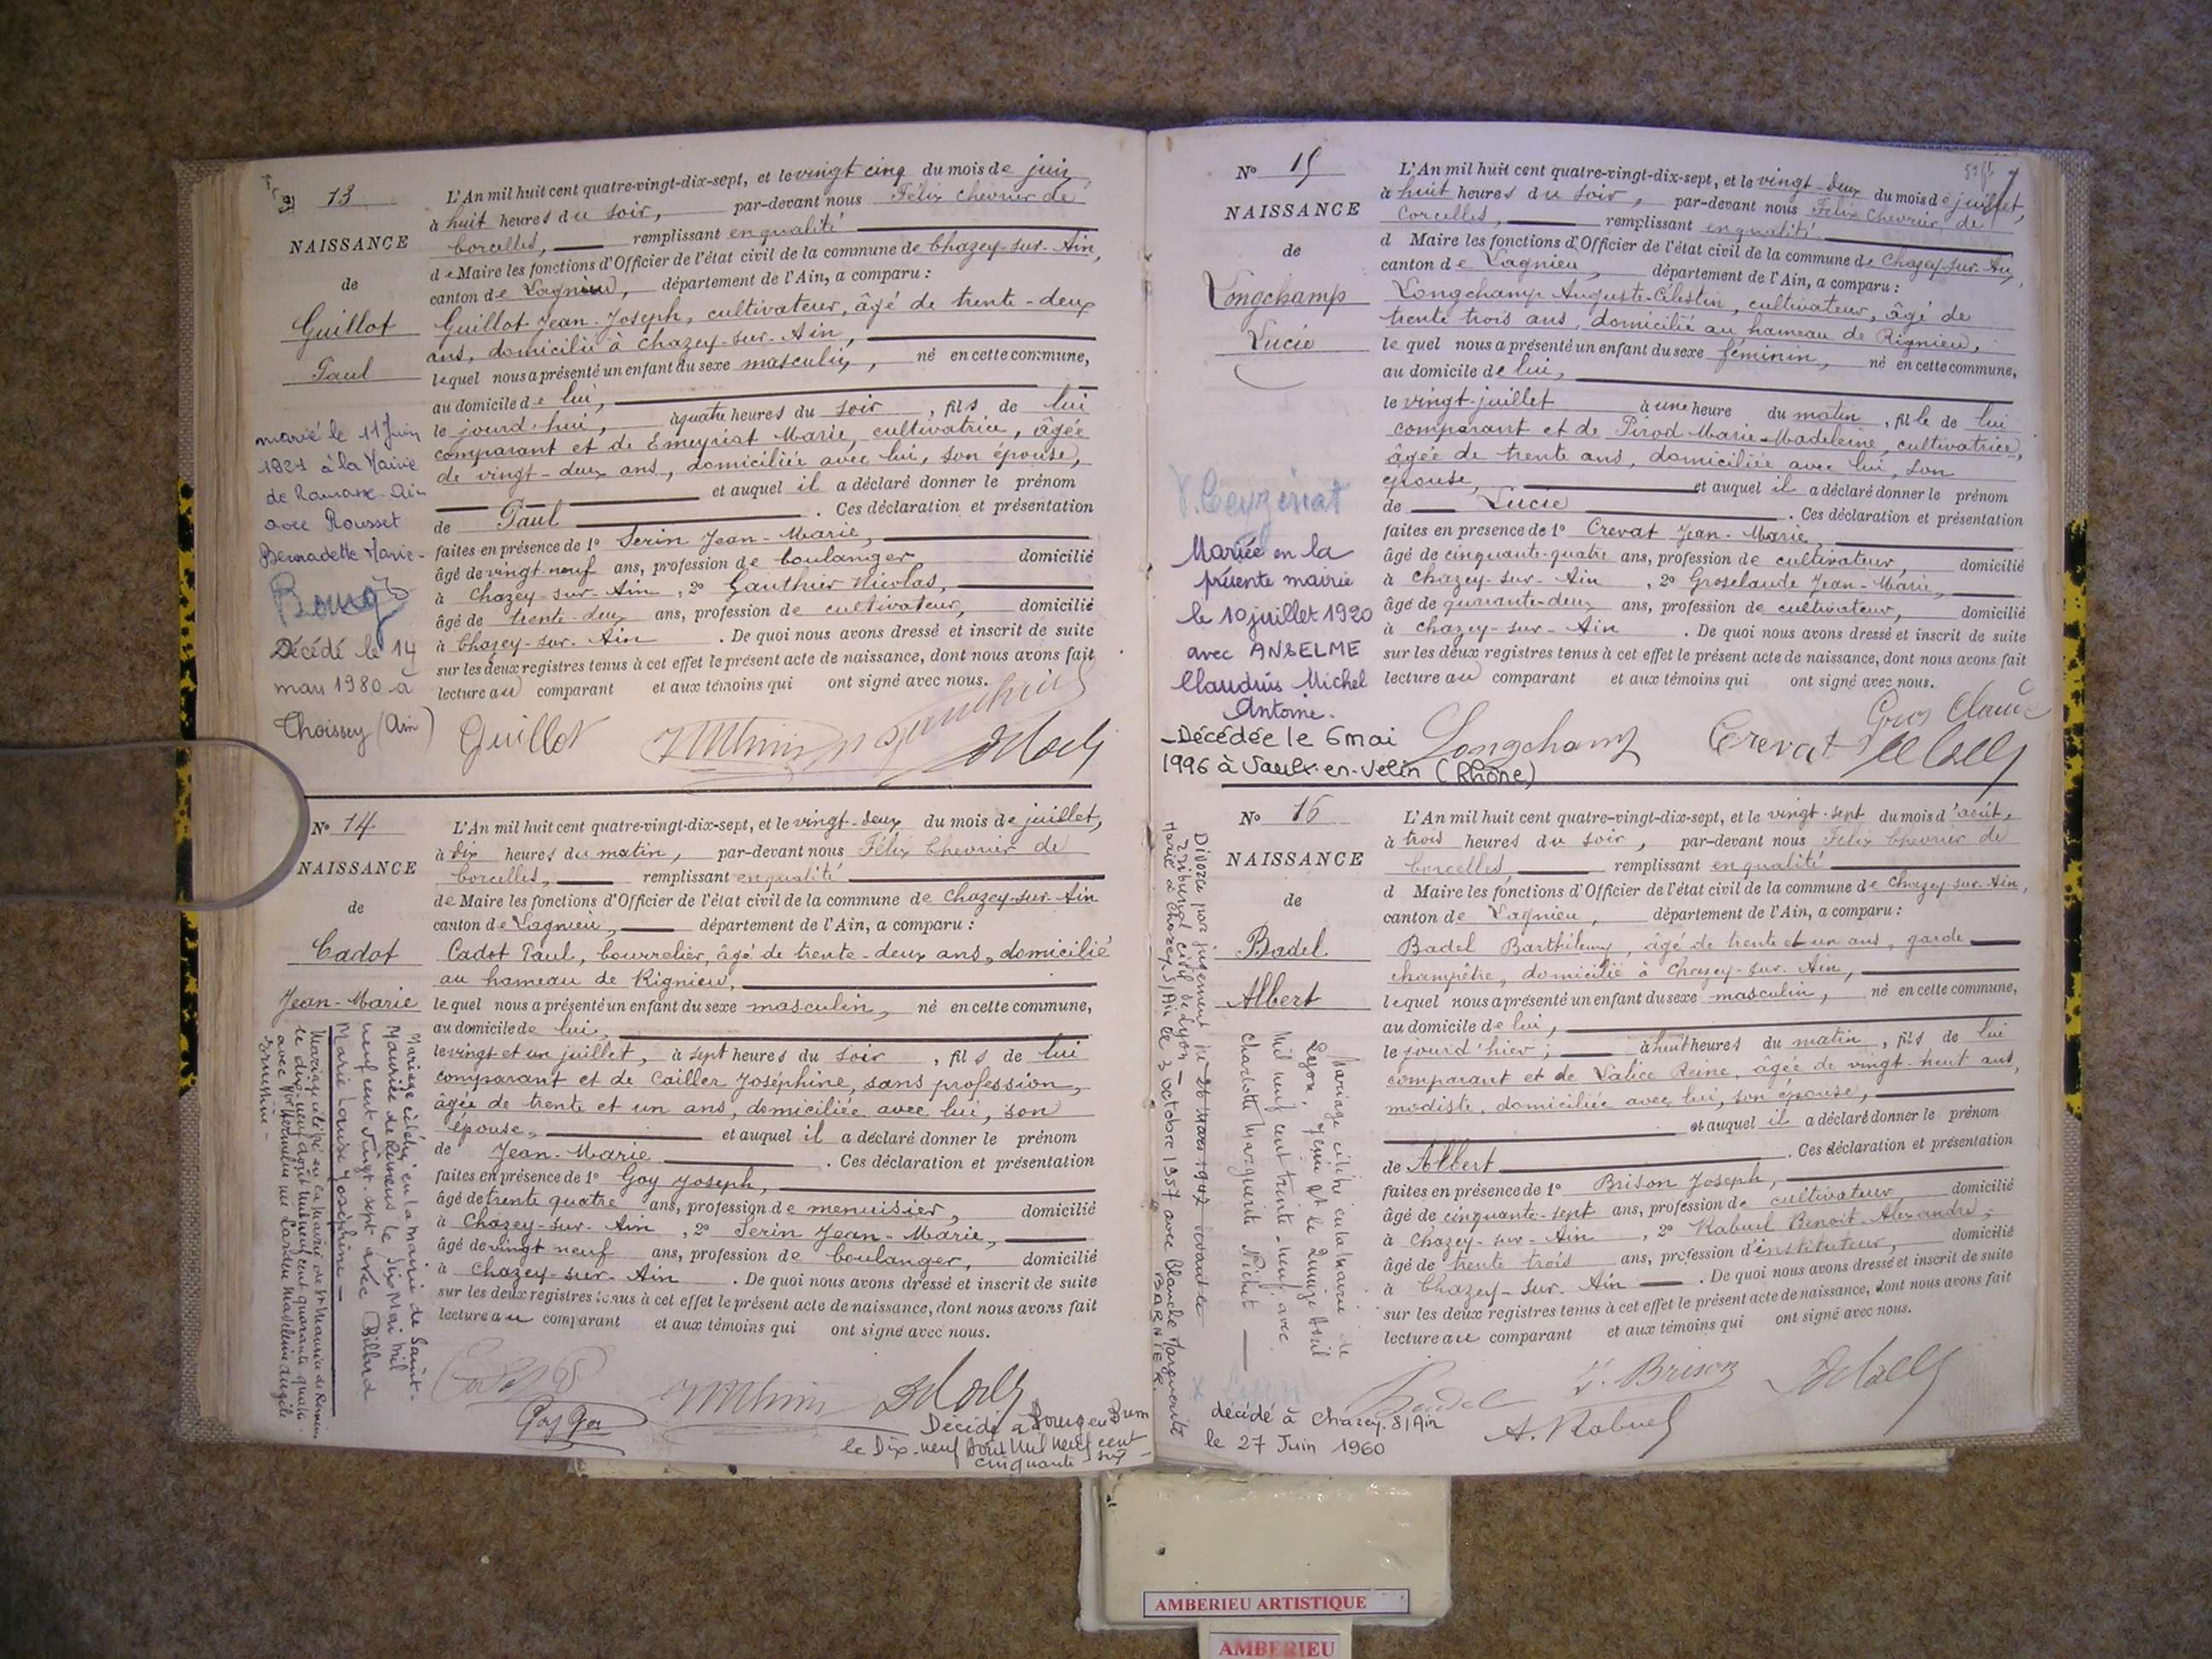 13
NAISSANCE
de
Guillot
Paul
L'An mil huit cent quatre-vingt-dix-sept, et le vingt cinq du mois de juin
à huit heures du soir, par-devant nous Félix Chevrier de
Corcelles, remplissant en qualité
de Maire les fonctions d'Officier de l'état civil de la commune de Chazey-sur-Ain,
canton de Lagnieu, département de l'Ain, a comparu :
Guillot Jean-Joseph, cultivateur, âgé de trente-deux
ans, domicilié à Chazey-sur-Ain,
lequel nous a présenté un enfant du sexe masculin, né en cette commune,
au domicile de lui,
le jourd'hui, à quatre heures du soir, fils de lui
comparant et de Emeyriat Marie, cultivatrice, âgée
de vingt-deux ans, domiciliée avec lui, son épouse,
et auquel il a déclaré donner le prénom
de Paul. Ces déclaration et présentation
faites en présence de 1° Serin Jean-Marie,
âgé de vingt neuf ans, profession de boulanger domicilié
à Chazey-sur-Ain, 2° Gauthier Nicolas,
âgé de trente-deux ans, profession de cultivateur, domicilié
à Chazey-sur-Ain. De quoi nous avons dressé et inscrit de suite
sur les deux registres tenus à cet effet le présent acte de naissance, dont nous avons fait
lecture au comparant et aux témoins qui ont signé avec nous.
marié le 11 Juin
1921 à la Mairie
de Ramasse Ain
avec Rousset
Bernadette Marie-
Bourg
Décédé le 14
mars 1980 à
Thoissey (Ain)
Guillot
N° 14
NAISSANCE
de
Cadot
Jean-Marie
L'An mil huit cent quatre-vingt-dix-sept, et le vingt-deux du mois de juillet,
à dix heures du matin, par-devant nous Félix Chevrier de
Corcelles, remplissant en qualité
de Maire les fonctions d'Officier de l'état civil de la commune de Chazey-sur-Ain
canton de Lagnieu, département de l'Ain, a comparu :
Cadot Paul, bourrelier, âgé de trente-deux ans, domicilié
au hameau de Rignieu,
lequel nous a présenté un enfant du sexe masculin, né en cette commune,
au domicile de lui,
le vingt et un juillet, à sept heures du soir, fils de lui
comparant et de Cailler Joséphine, sans profession,
âgée de trente et un ans, domiciliée avec lui, son
épouse, et auquel il a déclaré donner le prénom
de Jean-Marie. Ces déclaration et présentation
faites en présence de 1° Goy Joseph,
âgé de trente quatre ans, profession de menuisier, domicilié
à Chazey-sur-Ain, 2° Serin Jean-Marie,
âgé de vingt neuf ans, profession de boulanger, domicilié
à Chazey-sur-Ain. De quoi nous avons dressé et inscrit de suite
sur les deux registres tenus à cet effet le présent acte de naissance, dont nous avons fait
lecture au comparant et aux témoins qui ont signé avec nous.
Mariage célébré en la mairie de Saint-
Maurice de Rémens le Six Mai mil
neuf cent vingt-sept avec Billard
Marie Louise Joséphine -
Décédé à Bourg en Bresse
le Dix-neuf Août Mil neuf cent
cinquante six
N° 15
NAISSANCE
de
Longchamp
Lucie
L'An mil huit cent quatre-vingt-dix-sept, et le vingt-deux du mois de juillet,
à huit heures du soir, par-devant nous Félix Chevrier de
Corcelles, remplissant en qualité
d Maire les fonctions d'Officier de l'état civil de la commune de Chazey-sur-Ain,
canton de Lagnieu, département de l'Ain, a comparu :
Longchamp Auguste-Célestin, cultivateur, âgé de
trente trois ans, domicilié au hameau de Rignieu,
lequel nous a présenté un enfant du sexe féminin, né en cette commune,
au domicile de lui,
le vingt-juillet à une heure du matin, fille de lui
comparant et de Pirod Marie-Madeleine, cultivatrice,
âgée de trente ans, domiciliée avec lui, son
épouse, et auquel il a déclaré donner le prénom
de Lucie. Ces déclaration et présentation
faites en présence de 1° Crevat Jean-Marie,
âgé de cinquante-quatre ans, profession de cultivateur, domicilié
à Chazey-sur-Ain, 2° Groselaude Jean-Marie,
âgé de quarante-deux ans, profession de cultivateur, domicilié
à Chazey-sur-Ain. De quoi nous avons dressé et inscrit de suite
sur les deux registres tenus à cet effet le présent acte de naissance, dont nous avons fait
lecture au comparant et aux témoins qui ont signé avec nous.
Mariée en la
présente mairie
le 10 juillet 1920
avec ANSELME
Claudius Michel
Antoine.
Décédée le 6 mai
1996 à Vaulx-en-Velin (Rhône)
Longchamp Crevat
N° 16
NAISSANCE
de
Badel
Albert
L'An mil huit cent quatre-vingt-dix-sept, et le vingt-sept du mois d'août,
à trois heures du soir, par-devant nous Félix Chevrier de
Corcelles, remplissant en qualité
d Maire les fonctions d'Officier de l'état civil de la commune de Chazey-sur-Ain,
canton de Lagnieu, département de l'Ain, a comparu :
Badel Barthélemy, âgé de trente et un ans, garde
champêtre, domicilié à Chazey-sur-Ain,
lequel nous a présenté un enfant du sexe masculin, né en cette commune,
au domicile de lui,
le jourd'hier, à huit heures du matin, fils de lui
comparant et de Valice Reine, âgée de vingt-huit ans,
modiste, domiciliée avec lui, son épouse,
et auquel il a déclaré donner le prénom
de Albert. Ces déclaration et présentation
faites en présence de 1° Brison Joseph,
âgé de cinquante-sept ans, profession de cultivateur, domicilié
à Chazey-sur-Ain, 2° Rabuel Benoit-Alexandre,
âgé de trente trois ans, profession d'instituteur, domicilié
à Chazey-sur-Ain. De quoi nous avons dressé et inscrit de suite
sur les deux registres tenus à cet effet le présent acte de naissance, dont nous avons fait
lecture au comparant et aux témoins qui ont signé avec nous.
Mariage célébré en la Mairie de
Lyon, le Quinze Avril
Mil neuf cent trente-neuf avec
Charlotte Marguerite Pichot
Divorce par jugement du 26 Mars 1947
Tribunal civil de Lyon -
Marié à Chazey-s/Ain le 3 octobre 1957 avec Blanche Marguerite
BARNIER.
Badel J. Brison
A. Rabuel
décédé à Chazey-S/Ain
le 27 Juin 1960
AMBERIEU ARTISTIQUE
AMBERIEU